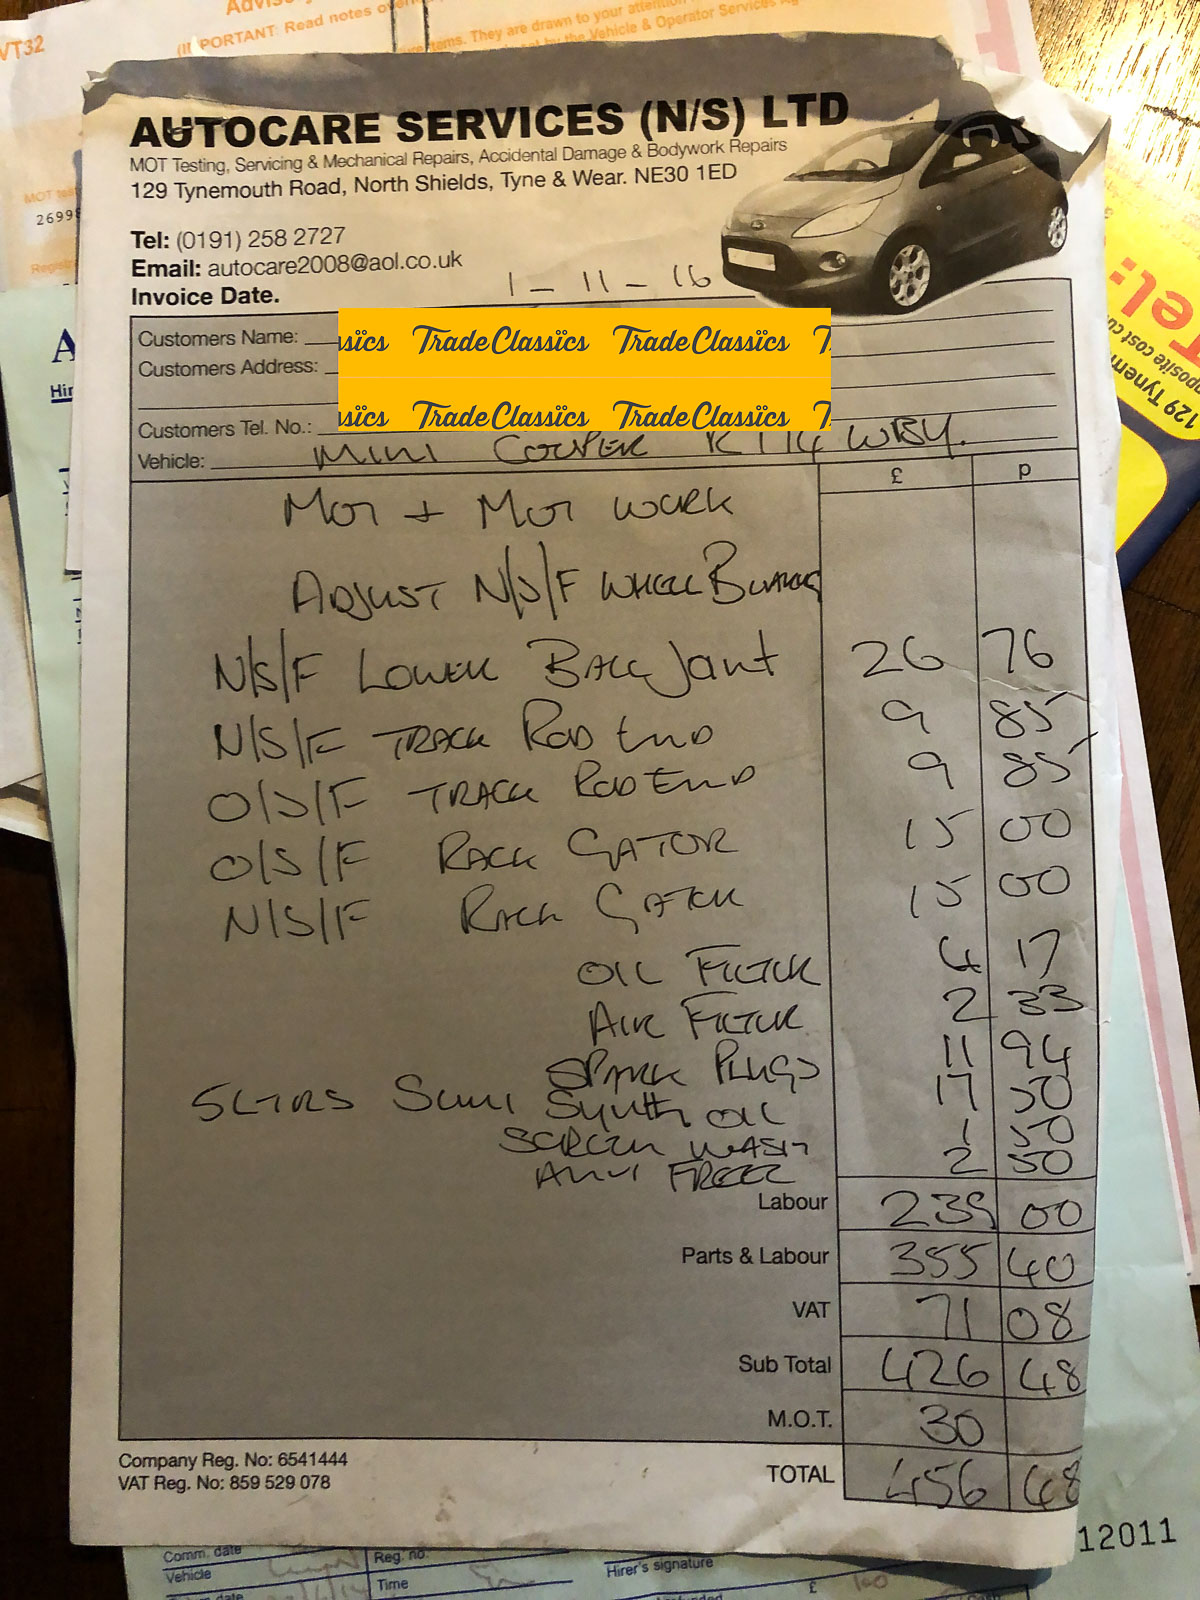 VT32
Advisory
(IMPORTANT: Read notes
items. They are drawn to your attention
the Vehicle & Operator Services
MOT
2699
AUTOCARE SERVICES (N/S) LTD
MOT Testing, Servicing & Mechanical Repairs, Accidental Damage & Bodywork Repairs
129 Tynemouth Road, North Shields, Tyne & Wear. NE30 1ED
Tel: (0191) 258 2727
Email: autocare2008@aol.co.uk
Invoice Date. 1-11-16
Customers Name:
ssïcs TradeClassïcs TradeClassïcs T
Customers Address:
ssïcs TradeClassïcs TradeClassïcs T
Customers Tel. No.:
Vehicle: MINI COOPER K114 WBY.
£ p
MOT + MOT WORK
ADJUST N/S/F WHEEL BEARING
N/S/F LOWER BALL JOINT 26 76
N/S/F TRACK ROD END 9 85
O/S/F TRACK ROD END 9 85
O/S/F RACK GATOR 15 00
N/S/F RACK GATOR 15 00
OIL FILTER 4 17
AIR FILTER 2 33
SPARK PLUGS 11 94
5LTRS SEMI SYNTH OIL 17 50
SCREEN WASH 1 50
ANTI FREEZ 2 50
Labour 239 00
Parts & Labour 355 40
VAT 71 08
Sub Total 426 48
M.O.T. 30
TOTAL 456 48
Company Reg. No: 6541444
VAT Reg. No: 859 529 078
Tel:
opposite cost cu
129 Tynem
12011
Comm. date
Vehicle
Reg. no.
Time
Hirer's signature
£